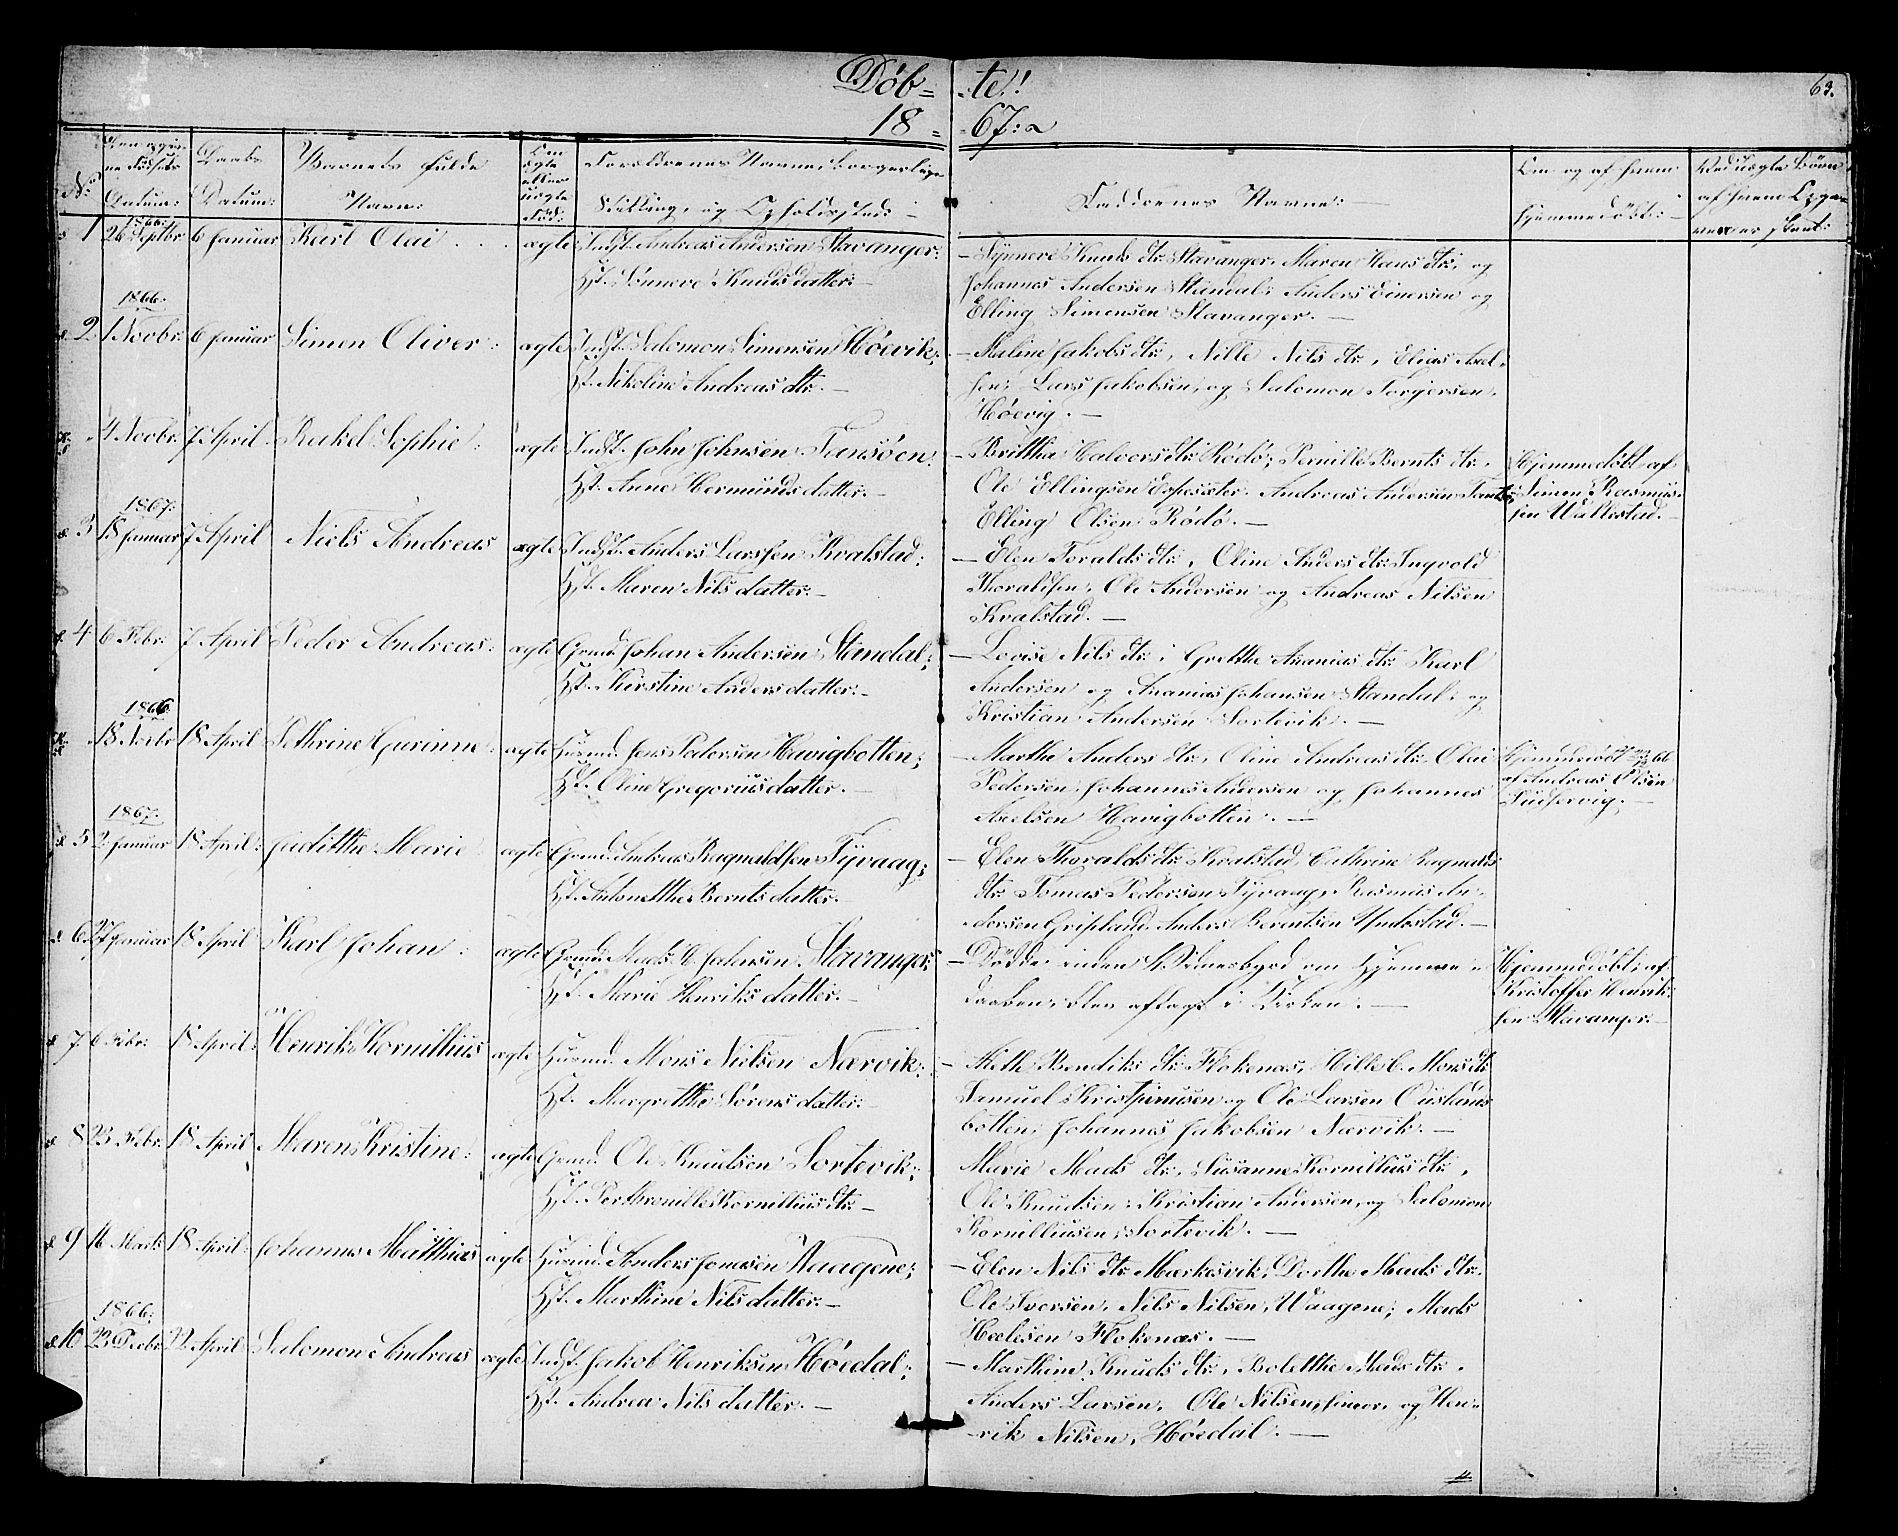 Döb= te!!
69.
18= =67:
No
Datum:
Daabs Datum:
Barnets fulde Navn:
Om ægte eller uægte Fød:
Forældrenes Navne, borgerlige Stilling, og Opholdssted:
Faddrenes Navne: —
Om og af hvem hjemmedøbt: —
Ved uægte Børn af hvem
1 1866: 26 Septbr 6 Januar Karl Olai ægte Indst. Andreas Andersen Stavanger:
Hst. Sønneve Knuds datter: —
— Synneve Knuds dtr: Stavanger, Maren Hans dtr: og
Johannes Andersen Standal: Anders Einersen og
Elling Simensen Stavanger. —
1866:
2 1 Novbr 6 Januar Simen Oliver: ægte Indst. Salomon Simensen Høevik:
Hst. Nikoline Andreas dtr. —
— Maline Jakobs dtr, Nille Nils dtr, Elias Axel-
sen, Lars Jakobsen, og Salomon Torgersen
Høevig. —
4 Novbr. 7 April Rakel Sophie: ægte Indst. John Johnsen Tansøen.
Hst. Anne Hermunds datter: —
— Brittha Halvors dtr Rödö; Pernille Bernts dtr.
Ole Ellingsen Espesæter. Andreas Andersen
Elling Olsen Rödö. —
Hjemmedøbt af
Simen Rasmus-
sen Vallestad. —
1867:
3 15 Januar 7 April Niels Andreas ægte Indst. Anders Larssen Kvalstad:
Hst. Maren Nils datter: —
— Elen Toralds dtr, Oline Anders dtr: Ingvold
Thoraldsen, Ole Andersen og Andreas Nilsen
Kvalstad. —
4 6 Febr. 7 April Peder Andreas: ægte Grmd. Johan Andersen Standal;
Hst. Kirstine Anders datter: —
— Lovise Nils dtr: Gretthe Ananias dtr Karl
Andersen og Ananias Johansen Standal: og
Kristian Andersen Sortevik. —
1866
18 Novbr 18 April Pethrine Gurinne: ægte Husmd. Jens Pedersen Havigbotten;
Hst. Oline Gregorius datter. —
— Marthe Anders dtr, Oline Andreas dtr Olai
Pedersen, Johannes Andersen og Johannes
Axelsen Havigbotten. —
Hjemmedøbt 66
af Andreas Olsen
1867:
5 2 Januar 18 April: Judithe Marie: ægte Grmd. Andreas Ragnvaldsen Tyvaag;
Hst. Antonetthe Bernts datter. —
— Elen Thoralds dtr Kvalstad, Cathrine Ragnvalds
dtr Tomas Pedersen Tyvaag, Rasmus An-
dersen Gripland Anders Berentsen Yndestad. —
6 27 Januar 18 April Karl Johan: ægte Grmd. Mads Johnsen Stavanger;
Hst. Marie Henriks datter: —
— Dødde inden Vidnesbyrd om Hjemme-
daaben, blev aflagt i Kirken. —
Hjemmedøbt: af
Kristoffer Henrik-
sen Stavanger. —
7 6 Febr: 18 April: Henrik Kornillius ægte Husmd. Mons Nilsen Nærvik:
Hst. Margretthe Sørens datter: —
— Bendiks dtr Flokenæs, Hille C. Mons dtr
Samuel Kristpinusen og Ole Larsen Ouslands
botten; Johannes Jakobsen Nærvik. —
8 23 Febr. 18 April Maren Kristine: ægte Grmd. Ole Knudsen Sortevik;
Hst. Perthronille Kornillius dtr —
Marie Mads dtr, Susanne Kornillius dtr,
Ole Knudsen: Kristian Andersen, og Salomon
Kornilliusen; Sortevik. —
9 16 Marts 18 April: Johannes Matthias ægte Husmd. Anders Jonasen Vaagene;
Hst. Marthine Nils datter. —
— Elen Nils dtr Markesvik, Dorthe Mads dtr:
Ole Iversen, Nils Nilsen, Waagene; Mads
Flokenæs. —
1866:
10 23 Decbr 22 April Salomon Andreas ægte Indst. Jakob Henriksen Høedal;
Hst. Andrea Nils datter: —
— Marthine Knuds dtr, Boletthe Mads dtr.
Anders Larsen, Ole Nilsen, og Hen-
rik Nilsen, Høedal. —